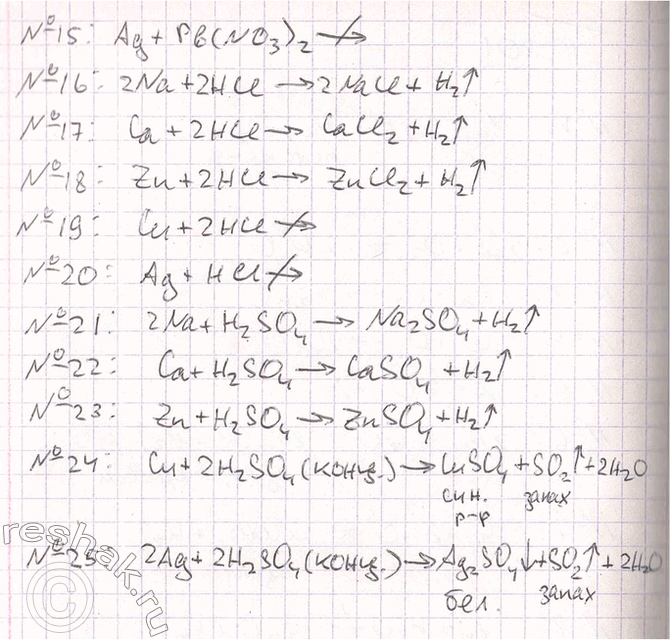 №15: Ag + Pb(NO₃)₂ ↛
№16: 2Na + 2HCl → 2NaCl + H₂↑
№17: Ca + 2HCl → CaCl₂ + H₂↑
№18: Zn + 2HCl → ZnCl₂ + H₂↑
№19: Cu + 2HCl ↛
№20: Ag + HCl ↛
№21: 2Na + H₂SO₄ → Na₂SO₄ + H₂↑
№22: Ca + H₂SO₄ → CaSO₄ + H₂↑
№23: Zn + H₂SO₄ → ZnSO₄ + H₂↑
№24: Cu + 2H₂SO₄ (конц.) → CuSO₄ + SO₂↑ + 2H₂O
син. запах
р-р
№25 2Ag + 2H₂SO₄ (конц.) → Ag₂SO₄↓ + SO₂↑ + 2H₂O
бел. запах
reshak.ru
©